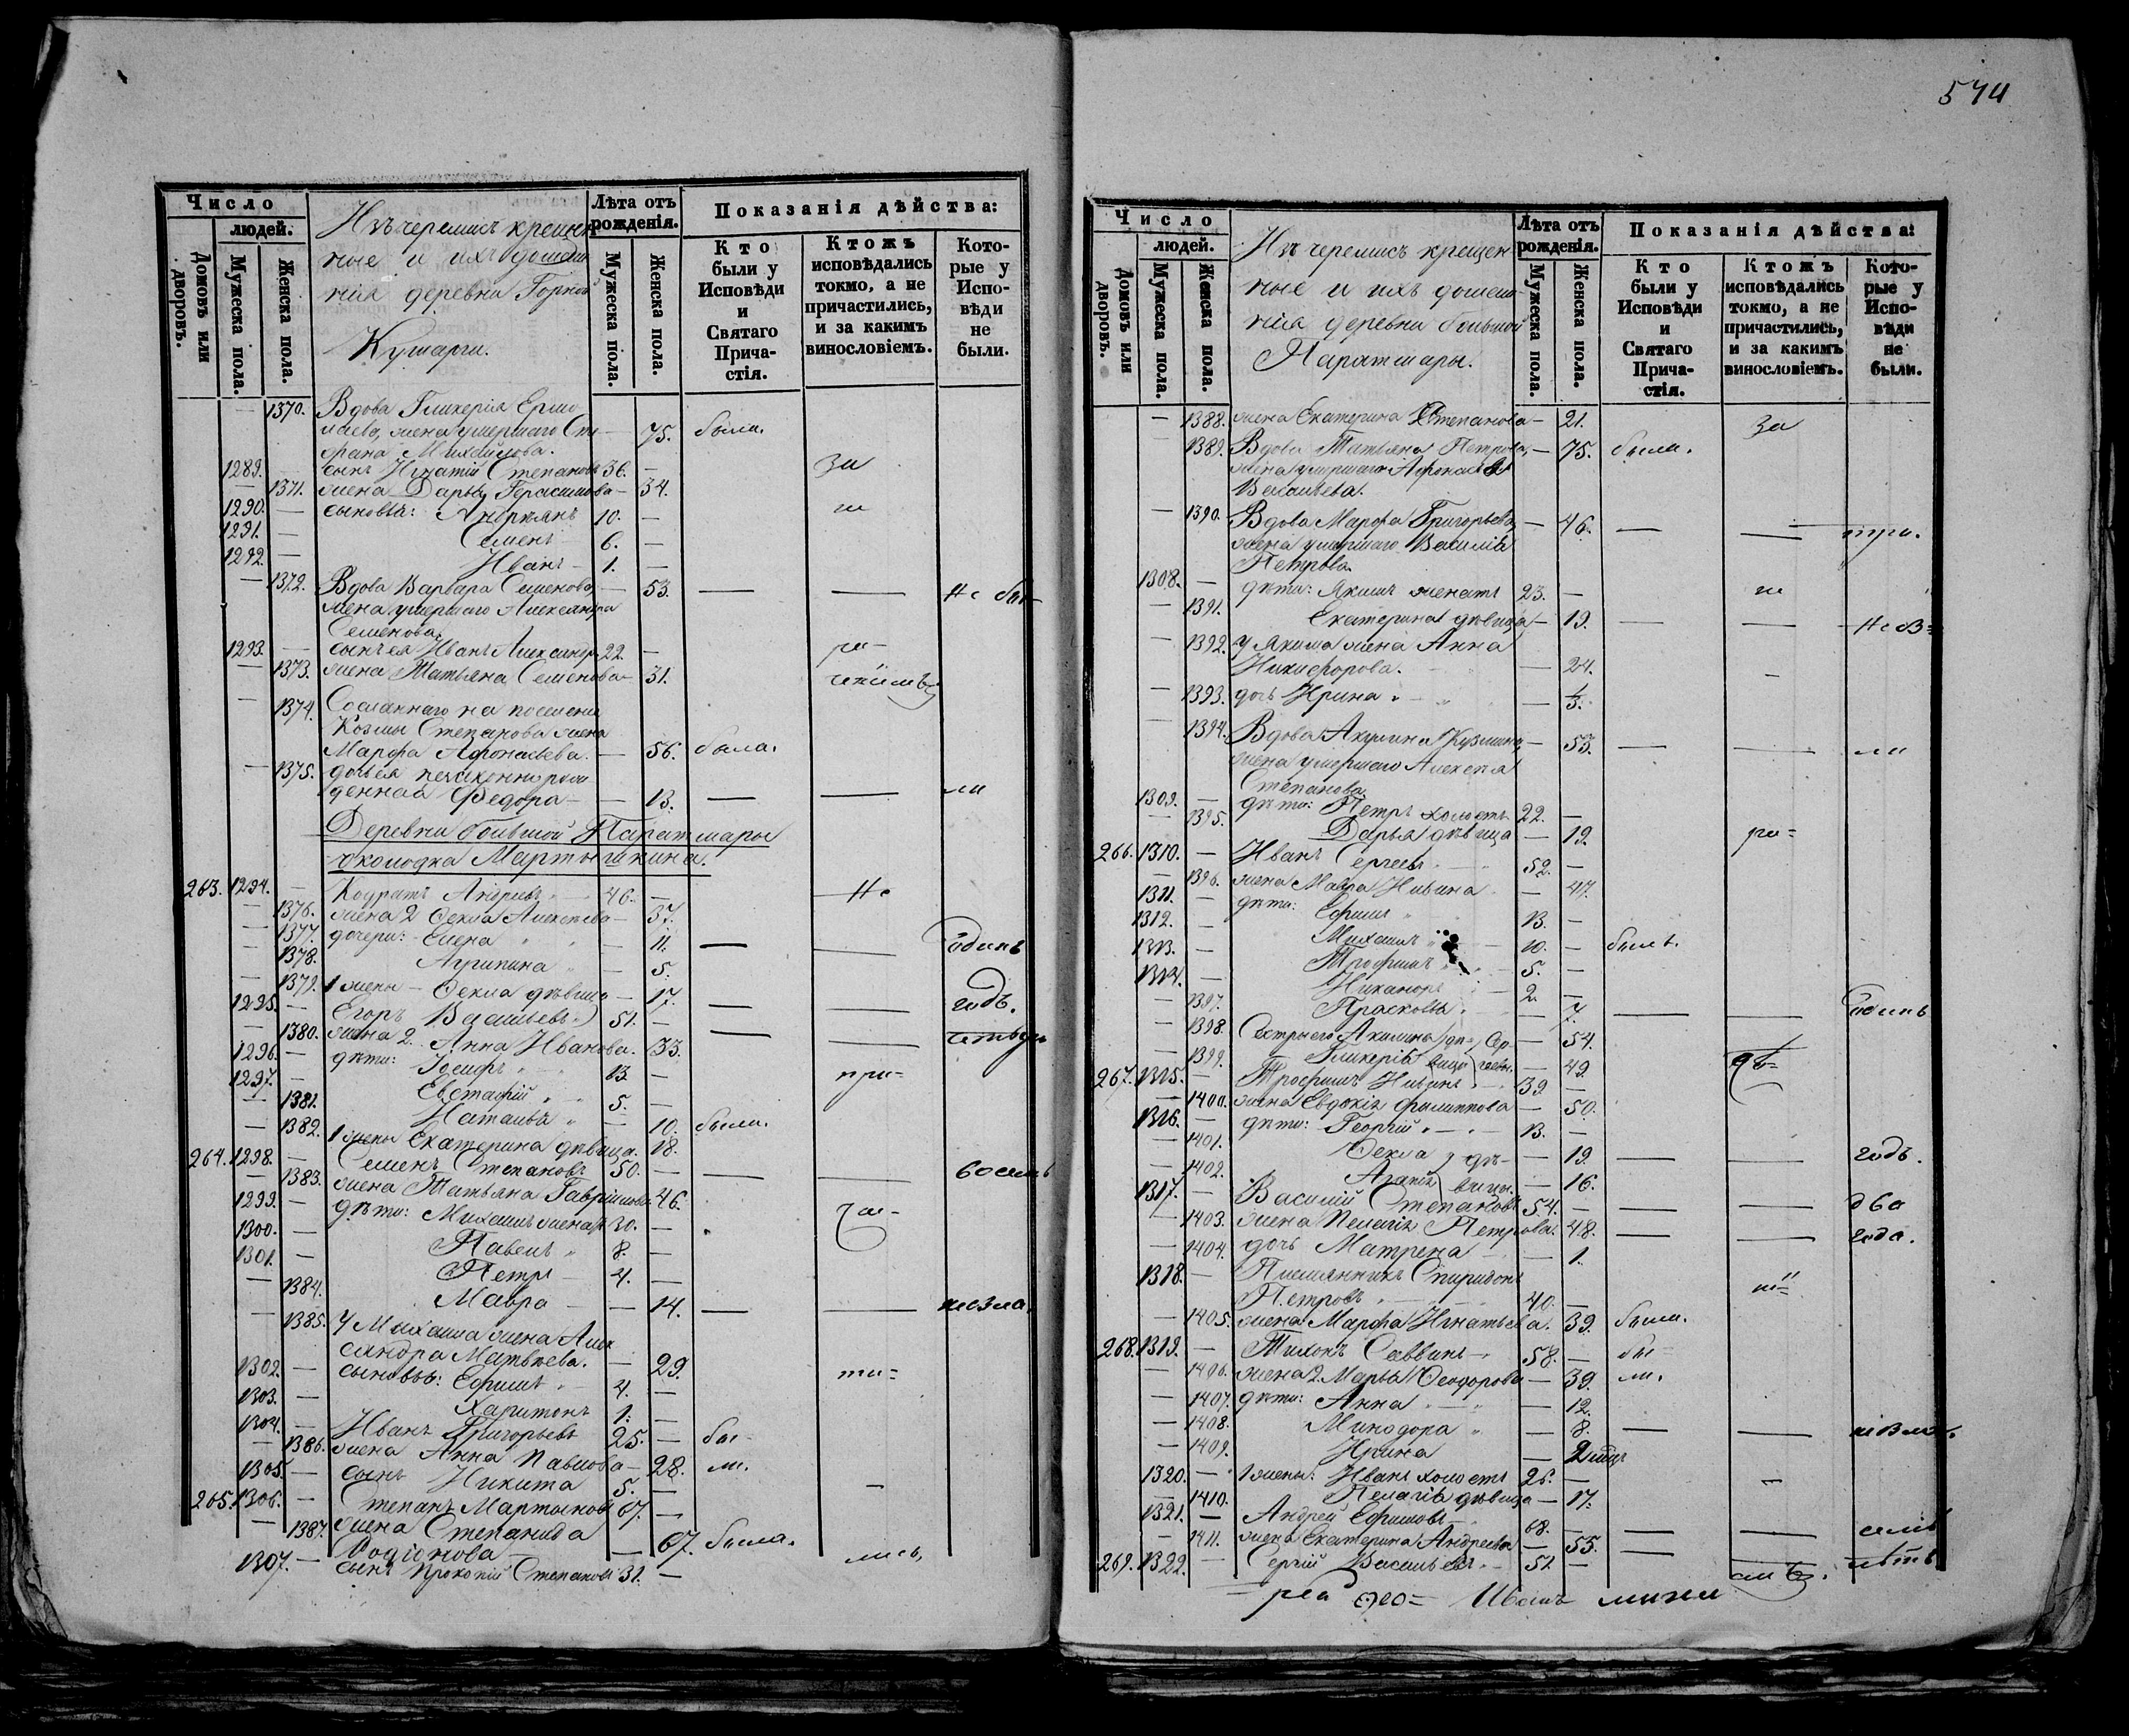 574
Число
людей.
Домовъ или дворовъ.
Мужеска пола.
Женска пола.
Изъ черемисъ крещен
ные и ихъ домаш
нія деревни Горной
Кушарги.
Лѣта отъ рожденія.
Мужеска пола.
Женска пола.
Показанія дѣйства:
Кто были у Исповѣди и Святаго Прича-стія.
Ктожъ исповѣдались токмо, а не причастились, и за какимъ винословіемъ.
Кото-рые у Испо-вѣди не были.
1370. Вдова Гликерія Ермо
лаева, жена умершаго Сте — 75. была.
фана Михайлова.
1289. — сынъ Игнатій Степановъ 36. — за
— 1371. жена Дарья Герасимова — 34.
1290. — сыновья: Андреянъ 10. —
1291. — Семенъ 6. —
1292. — Иванъ — 1. —
— 1372. Вдова Варвара Семенова, — 53. — — Не бы-
жена умершаго Александра
Семенова.
1293. — сынъ ея Иванъ Александр. 22. — ра-
— 1373. жена Татьяна Семенова — 31.
— 1374. Сосланнаго на поселеніе
Козмы Степанова жена
Марфа Афонасьева. — 56. была.
— 1375. дочь ея незаконнорож
денная Федора — — 13. — — ли
Деревни большой Паратмары
околодка Мартышкина.
263. 1294. — Кодратъ Андреевъ 46. — Не
— 1376. жена 2 Фекла Алексѣева — 37.
— 1377. дочери: Елена — 11. — — одинъ
— 1378. Агрипина — 5.
— 1379. 1 жены — Фекла дѣвица — 17. — — годъ.
1295. — Егоръ Васильевъ 51. —
— 1380. жена 2. Анна Иванова. 33. — —
1296. — дѣти: Іосифъ 13. — при-
1297. — Евстафій 5. —
— 1381. Наталья — 10. была.
— 1382. 1 жены Екатерина дѣвица. 18.
264. 1298. — Семенъ Степановъ 50. — — — восемь
— 1383. жена Татьяна Гавріилова 46.
1299. — дѣти: Михаилъ женатъ 30. — час-
1300. — Павелъ 8. —
1301. — Петръ 4. —
— 1384. Мавра — — 14. — —
— 1385. У Михаила жена Алек
сандра Матвѣева. — 29.
1302. — сыновья: Ефимъ 4. — ти-
1303. — Харитонъ 1. —
1304. — Иванъ Григорьевъ 25. — бы-
— 1386. жена Анна Павлова — 28. ли.
1305. — сынъ Никита 5. — —
265. 1306. — Степанъ Мартыновъ 67. —
— 1387. жена Степанида
Родіонова — — 67. была.
1307. — сынъ Прокопій Степановъ 31. — лись,
Число
людей.
Домовъ или дворовъ.
Мужеска пола.
Женска пола.
Изъ черемисъ крещен
ные и ихъ домаш-
нія деревни большой
Паратмары.
Лѣта отъ рожденія.
Мужеска пола.
Женска пола.
Показанія дѣйства:
Кто были у Исповѣди и Святаго Прича-стія.
Ктожъ исповѣдались токмо, а не причастились, и за какимъ винословіемъ.
Кото-рые у Испо-вѣди не были.
— 1388. жена Екатерина Степанова — 21. за
1389. Вдова Татьяна Петрова, — 75. была.
жена умершаго Афонасья
Васильева.
— 1390. Вдова Марфа Григорьева, — 46. — — три.
жена умершаго Василія
Петрова.
1308. — дѣти: Якимъ женатъ 23. —
— 1391. Екатерина дѣвица — 19. — —
— 1392. у Якима жена Анна
Никифорова. — 24.
— 1393. дочь Ирина —
— 1394. Вдова Акулина Кузмина, — 53. — — ли
жена умершаго Алексѣя
Степанова.
1309. — дѣти: Петръ холостъ 22. —
— 1395. Дарья дѣвица — 19. ра-
266. 1310. — Иванъ Сергеевъ 52. —
— 1396. жена Мавра Ильина — 47.
1311. — дѣти: Ефимъ 13. —
1312. — Михаилъ 10. — былъ.
1313. — Трофимъ 5. —
1314. — Никаноръ 2. —
— 1397. Прасковья — 7. — — одинъ
— 1398. Сестры его Акилина — 54.
— 1399. Гликерія — 49.
267. 1315. — Трофимъ Ильинъ 39. —
— 1400. жена Евдокія Филиппова — 50.
1316. — дѣти: Георгій 13. —
— 1401. Фекла дѣ- — 19. — — годъ.
— 1402. Агапія вицы. — 16.
1317. — Василій Степановъ 54. — — — два
— 1403. жена Пелагія Петрова. 48. — — года.
— 1404. дочь Матрена — — 1.
1318. — Племянникъ Спиридонъ
Петровъ 40. —
— 1405. жена Марфа Игнатьева. 39. была.
268. 1319. — Тихонъ Саввинъ 58. — бы-
— 1406. жена 2. Марья Феодорова — 39. ли.
— 1407. дѣти: Анна — 12.
— 1408. Минодора — 8. — —
— 1409. Ирина —
1320. — 1 жены: Иванъ холостъ 26. —
— 1410. Пелагія дѣвица — 17.
1321. — Андрей Ефимовъ 68. — — — семь
— 1411. жена Екатерина Андреева — 55. —
269. 1322. — Сергій Васильевъ 51. — лѣтъ
Иванъ